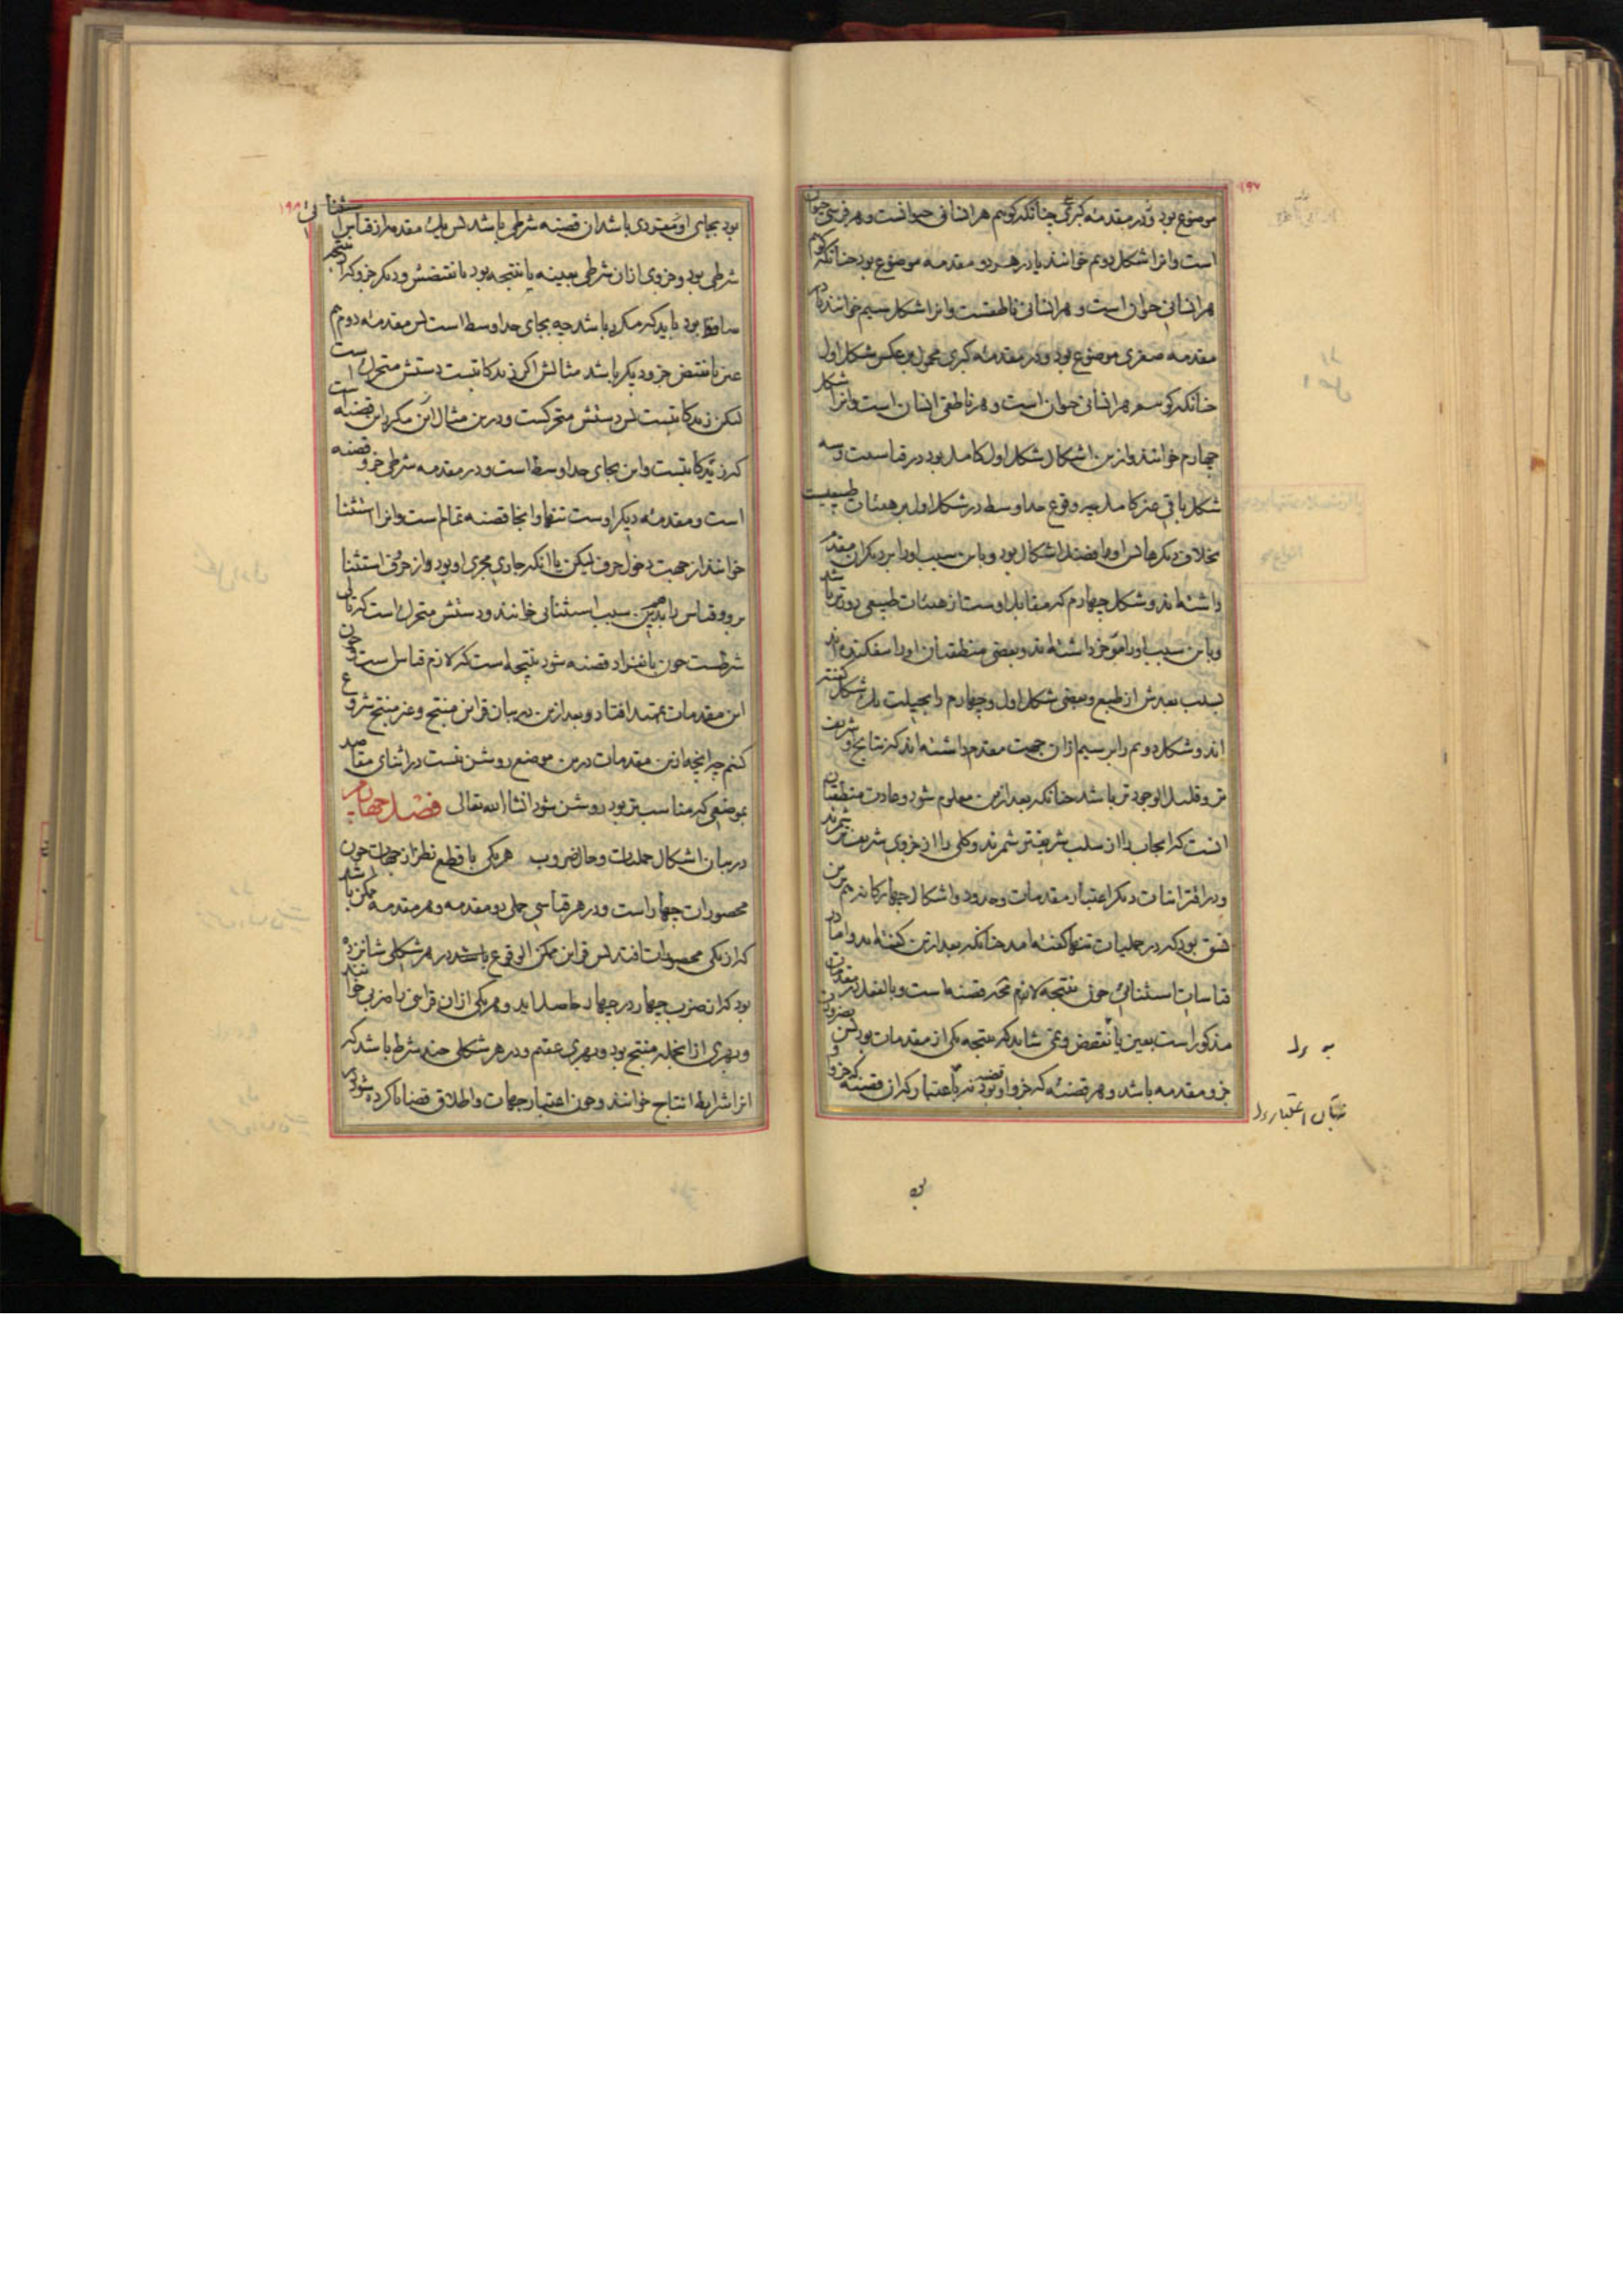 ۱۹۷
موضوع بود و در مقدمهٔ کبری چنانکه کوییم هر انسانی حیوانست و هر فرسی حیوان
است و انرا شکل دویم خوانند یا در هر دو مقدمه موضوع بود چنانکه کوییم
هر انسانی حیوان است و هر انسانی ناطقست و انرا شکل سیم خوانند یا در
مقدمه صغری موضوع بود و در مقدمهٔ کبری محمول بر عکس شکل اول
چنانکه کوییم هر انسانی حیوان است و هر ناطقی انسان است و انرا شکل
چهارم خوانند و ازین اشکال شکل اول کامل بود در قیاسیت و سه
شکل باقی غیر کامل چه وقوع حد اوسط در شکل اول بر هیئات طبیعیست
بخلاف دیگرها پس او افضل اشکال بود و باین سبب او را بر دیکران مقدم
داشته اند و شکل چهارم که مقابل اوست از هیئات طبیعی دورتر باشد
و باین سبب او را موخر داشته اند و بعضی منطقیان او را بیفکنده اند
بسبب بعدش از طبع و بعضی شکل اول و چهارم را بحیلت یک شکل کفته
اند و شکل دویم را بر سیم ازان جهت مقدم داشته اند که نتایج او شریف
تر و قلیل الوجود تر باشد چنانکه بعد ازین معلوم شود و عادت منطقیان
انست که ایجاب را از سلب شریفتر شمرند و کلی را از جزوی شریفتر شمرند
و در اقترانیات دیکر اعتبار مقدمات و حدود و اشکال چهارکانه هم برین
نسق بود که در حملیات تنها کفته امد چنانکه بعد ازین کفته اید و اما در
قیاسات استثنائی چون نتیجه لازم قضیه است و بالفعل در مقدمات
مذکور است بعین یا نقیض و نمی شاید که نتیجه یکی از مقدمات بود پس بضرورت
جزو مقدمه باشد و هر قضیهٔ که جزو او قضیه بود نه باعتبار که ان قضیه که جزو
به رل
اعتبار رل
بود
۱۹۸
بود بجای او مفردی باشد ان قضیه شرطی باشد پس یک مقدمه از قیاس استثنائی
شرطی بود و جزوی ازان شرطی بعینه یا نتیجه بود یا نقیضش و دیکر جزو که از نتیجه
ساقط بود باید که مکرر باشد چه بجای حد اوسط است پس مقدمهٔ دوم هم
عین یا نقیض جزو دیکر باشد مثالش اکر زید کاتبست دستش متحرکست
لیکن زید کاتبست پس دستش متحرکست و درین مثال این مکرر این قضیه است
که زید کاتبست و این بجای حد اوسط است و در مقدمه شرطی جزو قضیه
است و مقدمهٔ دیکر اوست تنها و اینجا قضیه تمام است و انرا استثنا
خوانند از جهت دخول حرف لیکن یا انکه جاری مجری او بود از حرف استثنا
برو و قیاس را بدین سبب استثنائی خوانند و دستش متحرک است که تالی
شرطست چون بانفراد قضیه شود نتیجه است که لازم قیاس است و چون
این مقدمات تمهید افتاد و بعد ازین در بیان قراین منتج و غیر منتج شروع
کنیم چه انچه ازین مقدمات درین موضع روشن نیست در اثنای مقاصد
بموضعی که مناسب تر بود روشن شود انشا الله تعالی فصل چهارم
در بیان اشکال حملیات و حال ضروب هر یکی با قطع نظر از جهات چون
محصورات چهار است و در هر قیاسی حملی دو مقدمه و هر مقدمه ممکن باشد
که از یکی محصورات افتد پس قراین ممکن الوقوع باشد در هر شکلی شانزده
بود که از ضرب چهار در چهار حاصل اید و هر یکی ازان قراین را ضربی خوانند
و بهری از انجمله منتج بود و بهری عقیم و در هر شکلی چند شرط باشد که
انرا شرایط انتاج خوانند و چون اعتبار جهات و اطلاق قضایا کرده شود در